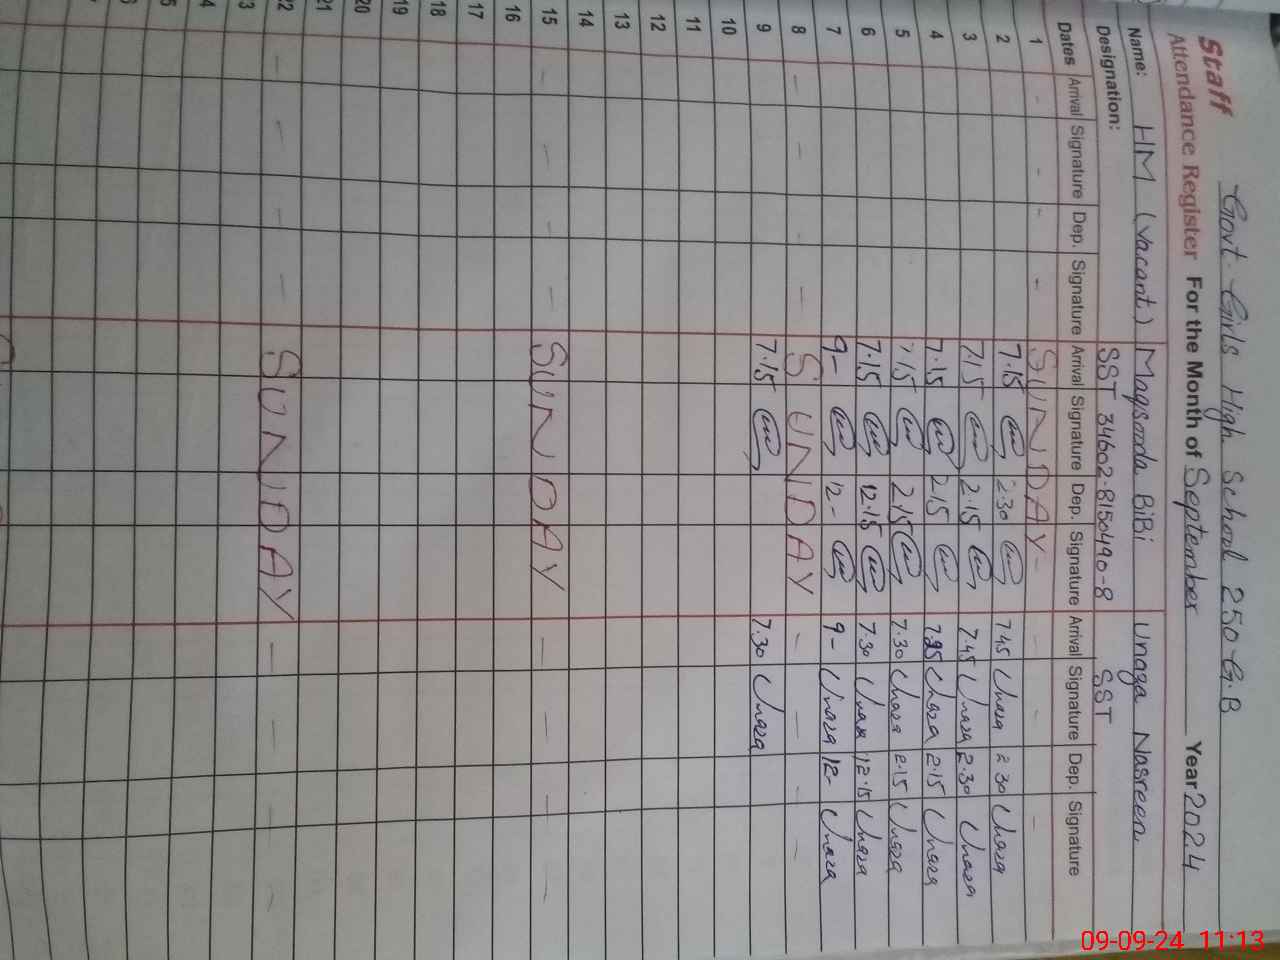 Govt. Girls High School 250 G.B
Staff
Attendance Register For the Month of September Year 2024
Name: HM (vacant) Maqsooda BiBi Unaza Nasreen
Designation: SST 34602-8150490-8 SST
Dates Arrival Signature Dep. Signature Arrival Signature Dep. Signature Arrival Signature Dep. Signature
1 - - - - SUNDAY - - - -
2 7.15 2.30 7.45 Unaza 2.30 Unaza
3 7.15 2.15 7.45 Unaza 2.30 Unaza
4 7.15 2.15 7.25 Unaza 2.15 Unaza
5 7.15 2.15 7.30 Unaza 2.15 Unaza
6 7.15 12.15 7.30 Unaza 12.15 Unaza
7 9- 12- 9- Unaza 12- Unaza
8 - - - - SUNDAY - - - -
9 7.15 7.30 Unaza
10
11
12
13
14
15 - - - - SUNDAY - - - -
16
17
18
19
20
21
22 - - - - SUNDAY - - - -
23
09-09-24 11:13